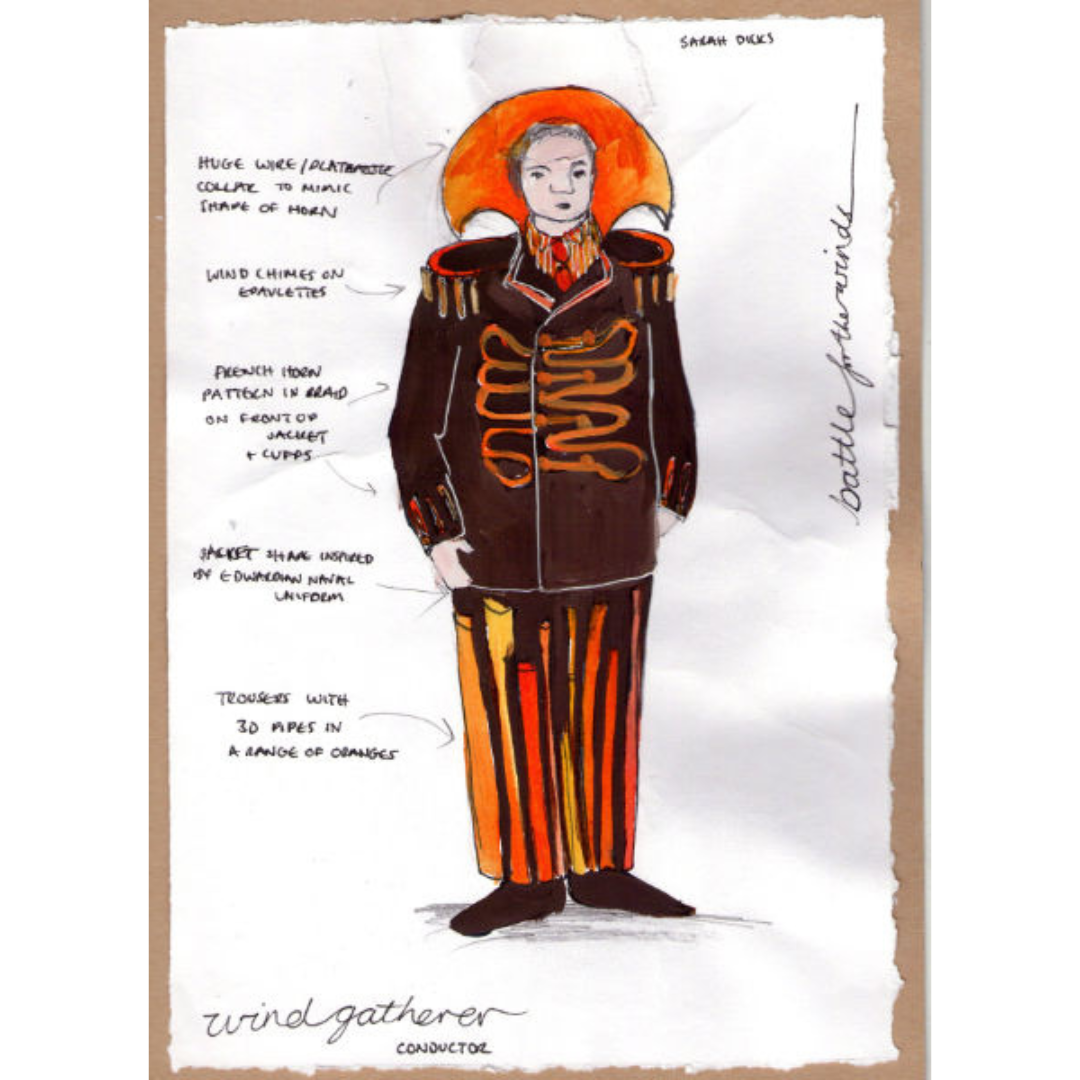 SARAH DICKS
HUGE WIRE /
COLLAR TO MIMIC
SHAPE OF HORN
WIND CHIMES ON
EPAULETTES
FRENCH HORN
PATTERN IN BRAID
ON FRONT OF
JACKET
+ CUFFS
JACKET SHAPE INSPIRED
BY EDWARDIAN NAVAL
UNIFORM
TROUSERS WITH
3D PIPES IN
A RANGE OF ORANGES
battle for the winds
wind gatherer
CONDUCTOR